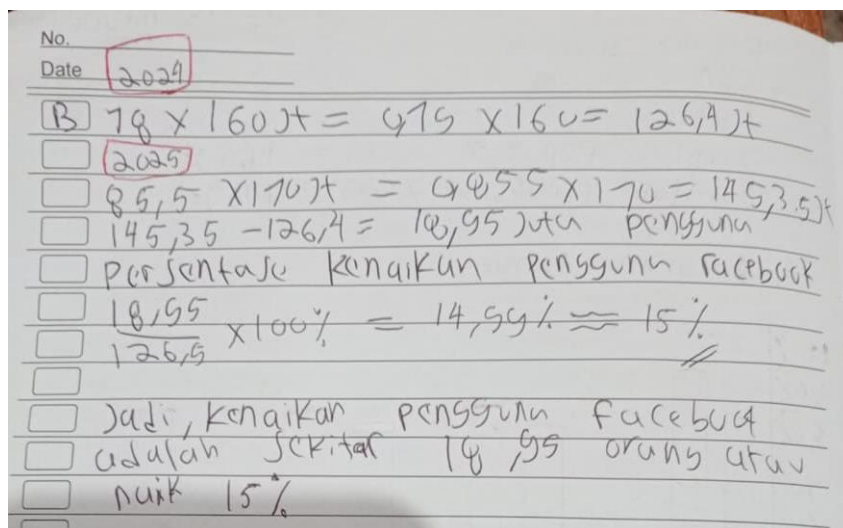 No.
Date 2024
B 79 x 160 Jt = 0,79 x 160 = 126,4 Jt
2025
85,5 x 170 Jt = 0,855 x 170 = 145,3.5 Jt
145,35 - 126,4 = 18,95 Juta pengguna
persentase kenaikan pengguna facebook
18,95
126,5 x 100% = 14,99% ≈ 15%
Jadi, kenaikan pengguna facebook
adalah sekitar 18,95 orang atau
naik 15%